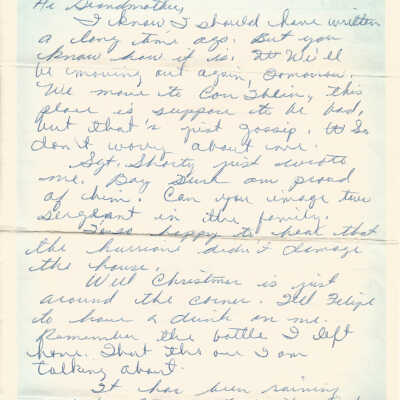 Hi Grandmother,
I know I should have written
a long time ago. But you
know how it is. We'll
be moving out again, Tomorrow.
We move to Con Thein, this
place is suppose to be bad,
but that's just gossip. So
don't worry about me.
Sgt. Shorty just wrote
me. Boy am proud
of him. Can you image two
sergeant in the family.
I'm so happy to hear that
the hurricane didn't damage
the house.
Well Christmas is just
around the corner. Tell Felipe
to have a drink on me.
Remember the bottle I left
home. That the one I am
talking about.
It has been raining